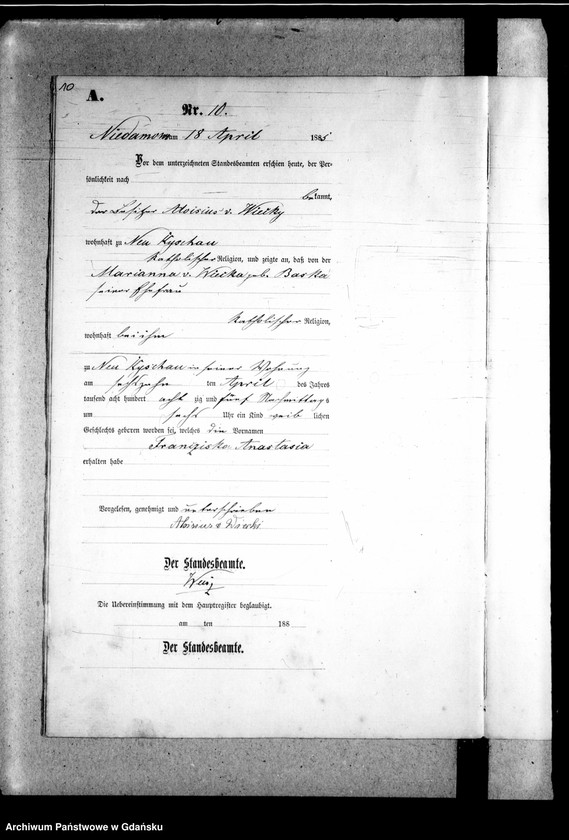 10
A.
Nr. 10.
Niedamowo am 18 April 1885
Vor dem unterzeichneten Standesbeamten erschien heute, der Per-
sönlichkeit nach
bekannt,
der Besitzer Aloisius v. Wiecky
wohnhaft zu Neu Kyschau
katholischer Religion, und zeigte an, daß von der
Marianna v. Wiecka geb. Baska
seiner Ehefrau
katholischer Religion,
wohnhaft bei ihm
zu Neu Kyschau in seiner Wohnung
am sechszehn ten April des Jahres
tausend acht hundert acht zig und fünf Nachmittags
um sechs Uhr ein Kind weib lichen
Geschlechts geboren worden sei, welches die Vornamen
Franziska Anastasia
erhalten habe
Vorgelesen, genehmigt und unterschrieben
Aloisius v Wiecki
Der Standesbeamte.
Die Uebereinstimmung mit dem Hauptregister beglaubigt.
am ten 188
Der Standesbeamte.
Archiwum Państwowe w Gdańsku